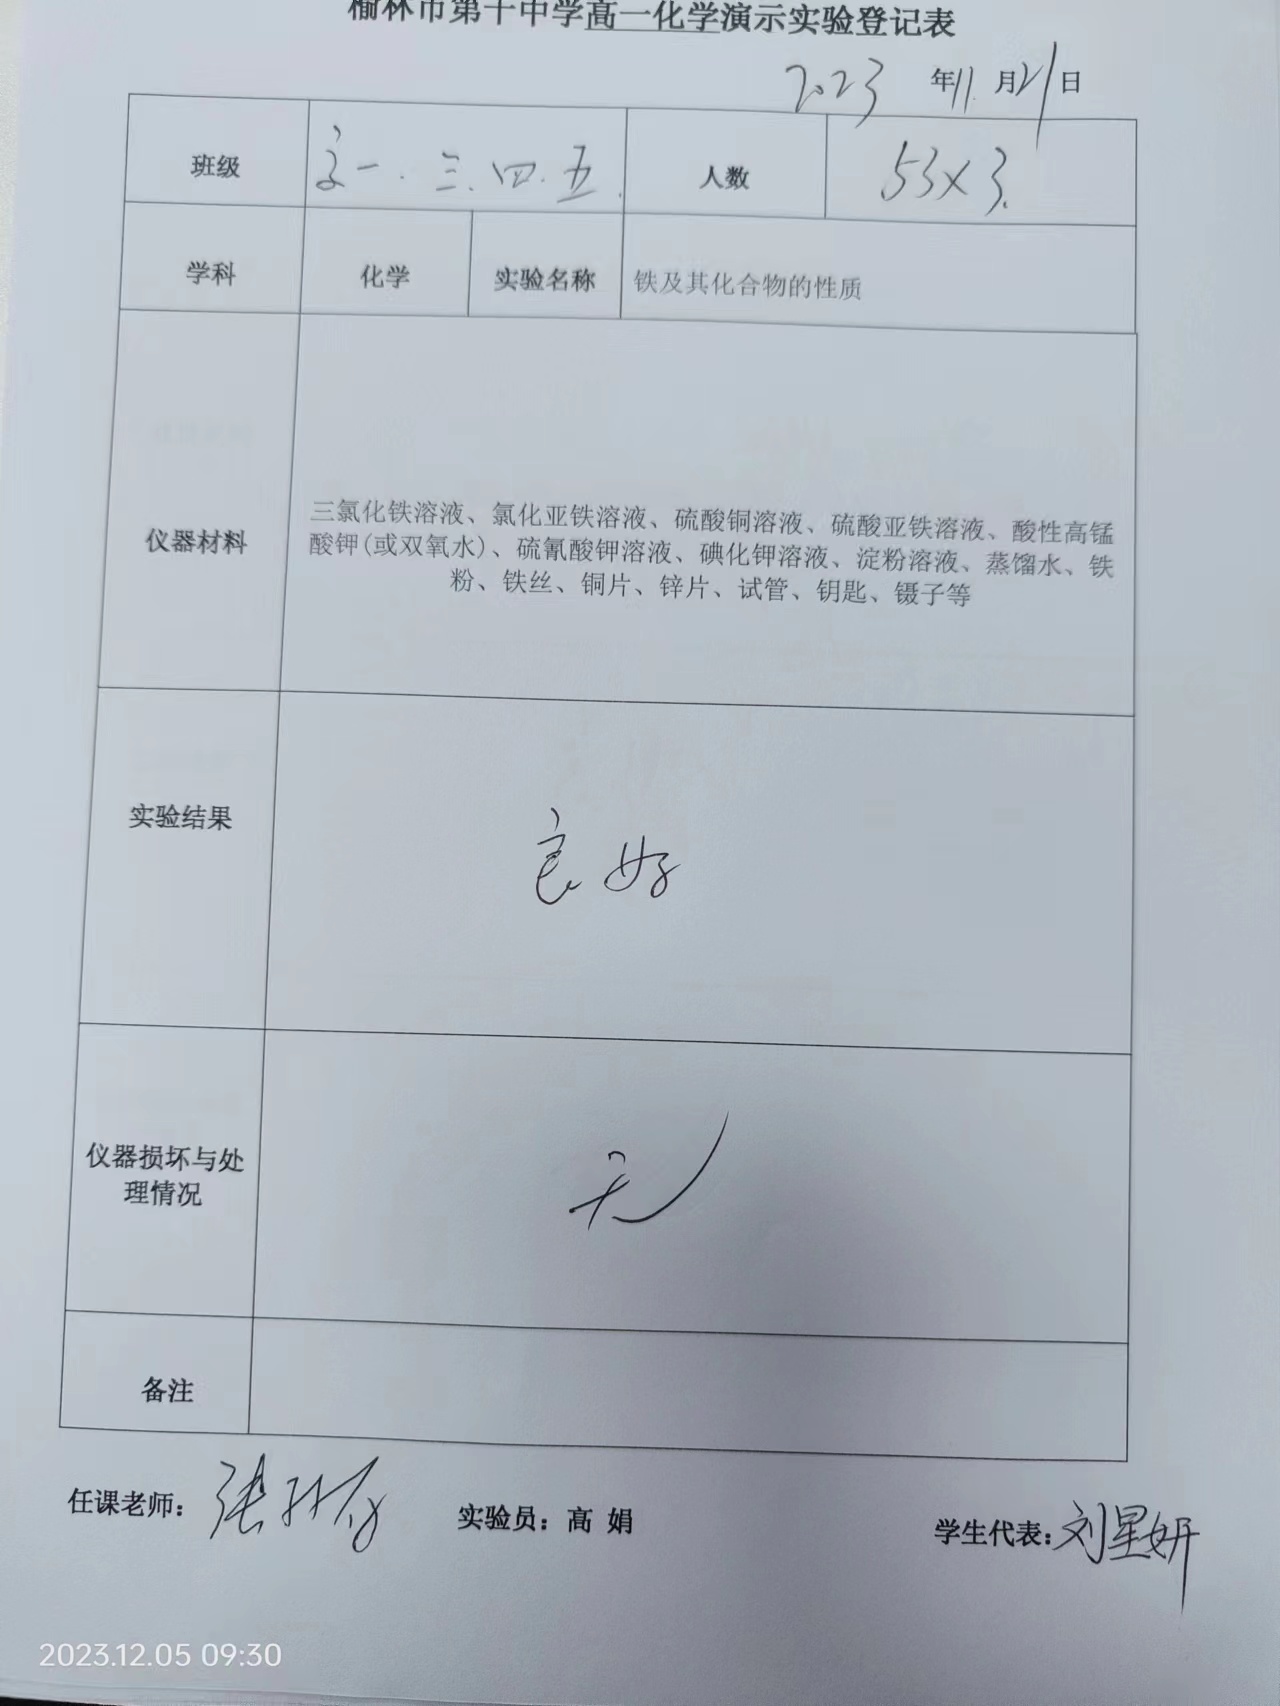 榆林市第十中学高一化学演示实验登记表
2023 年 11 月 21 日
班级 高一.三.四.五. 人数 53×3.
学科 化学 实验名称 铁及其化合物的性质
仪器材料
三氯化铁溶液、氯化亚铁溶液、硫酸铜溶液、硫酸亚铁溶液、酸性高锰
酸钾(或双氧水)、硫氰酸钾溶液、碘化钾溶液、淀粉溶液、蒸馏水、铁
粉、铁丝、铜片、锌片、试管、钥匙、镊子等
实验结果 良好
仪器损坏与处
理情况
无
备注
任课老师: 张 实验员: 高 娟 学生代表: 刘星妍
2023.12.05 09:30